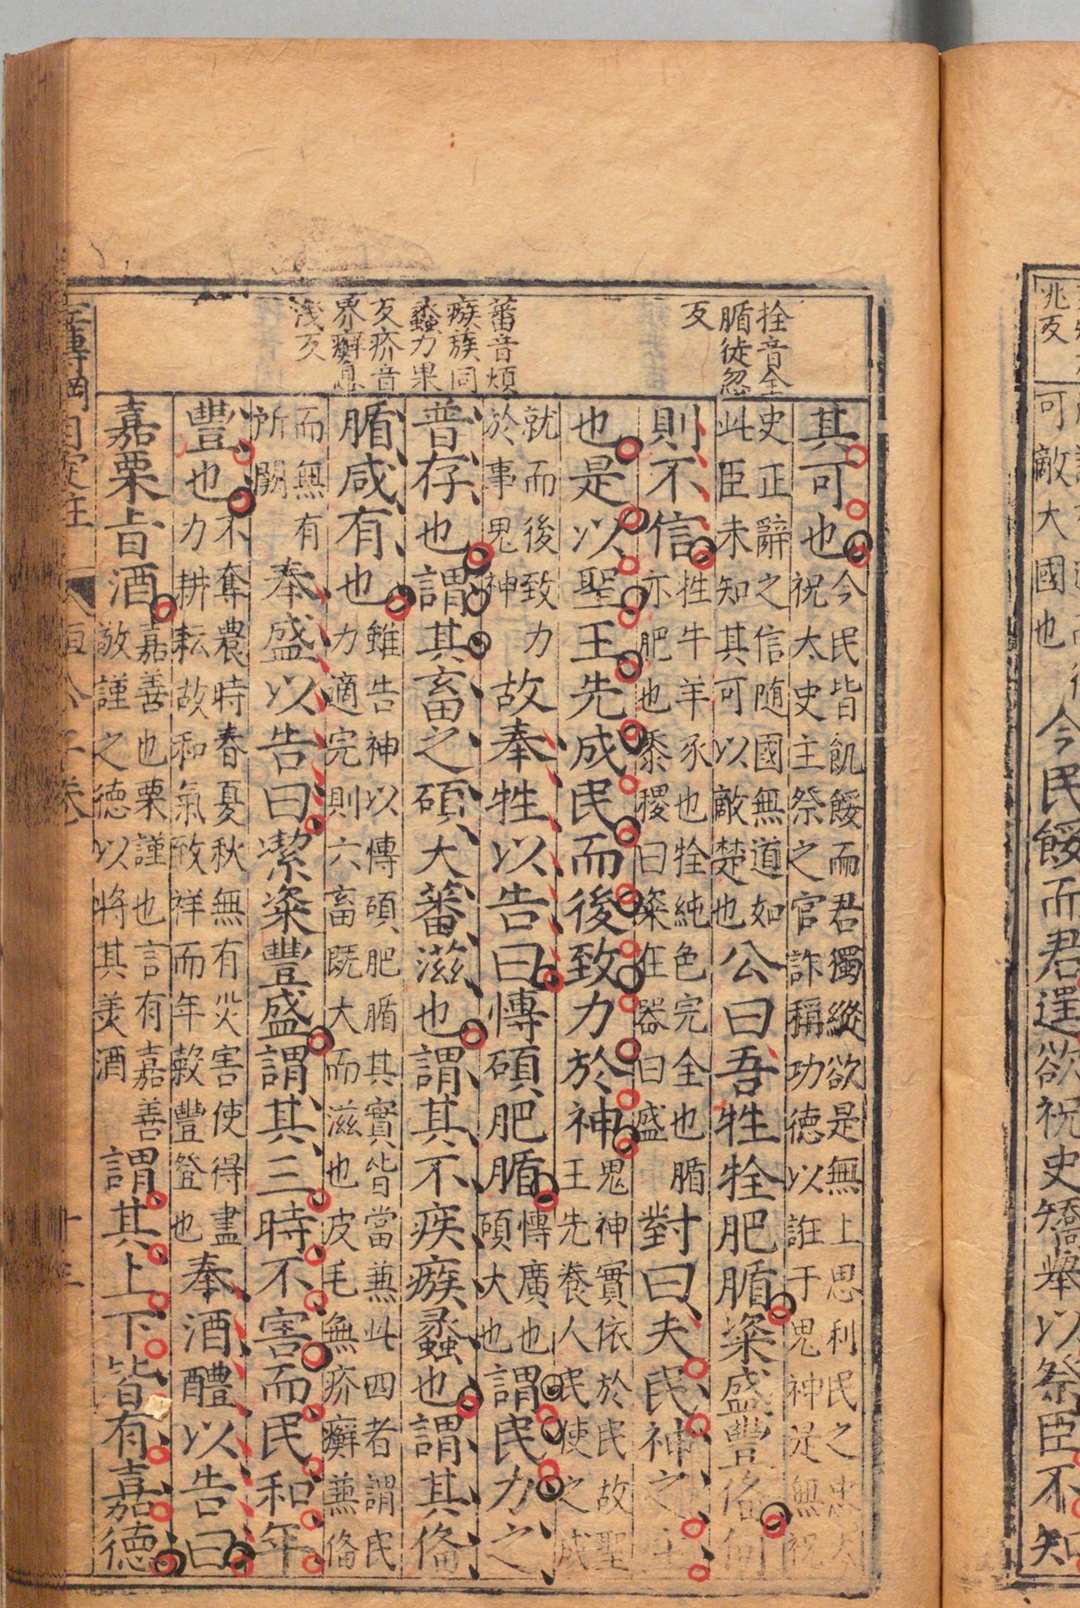 兆反
可敵大國也
今民餒而君逞欲祝史矯舉以祭臣不知
拴音全
腯徒忽
反
蕃音煩
瘯族同
蠡力果
反疥音
界癬息
淺反
其可也
今民皆飢餒而君獨縱欲是無上思利民之忠大
祝太史主祭之官詐稱功德以誑于鬼神是無祝
史正辭之信随國無道如
此臣未知其可以敵楚也
公曰吾牲牷肥腯粢盛豐俻何
則不信
牲牛羊豕也牷純色完全也腯
亦肥也黍稷曰粢在器曰盛
對曰夫民神之主
也是以聖王先成民而後致力於神
鬼神實依於民故聖
王先養人民使之成
就而後致力
於事鬼神
故奉牲以告曰博碩肥腯
博廣也
碩大也
謂民力之
普存也謂其畜之碩大蕃滋也謂其不疾瘯蠡也謂其俻
腯咸有也
雖告神以博碩肥腯其實皆當兼此四者謂民
力適完則六畜既大而滋也皮毛無疥癬兼俻
而無有
所闕
奉盛以告曰潔粢豐盛謂其三時不害而民和年
豐也
不奪農時春夏秋無有災害使得盡
力耕耘故和氣致祥而年穀豐登也
奉酒醴以告曰
嘉栗旨酒
嘉善也栗謹也言有嘉善
敬謹之德以將其美酒
謂其上下皆有嘉德